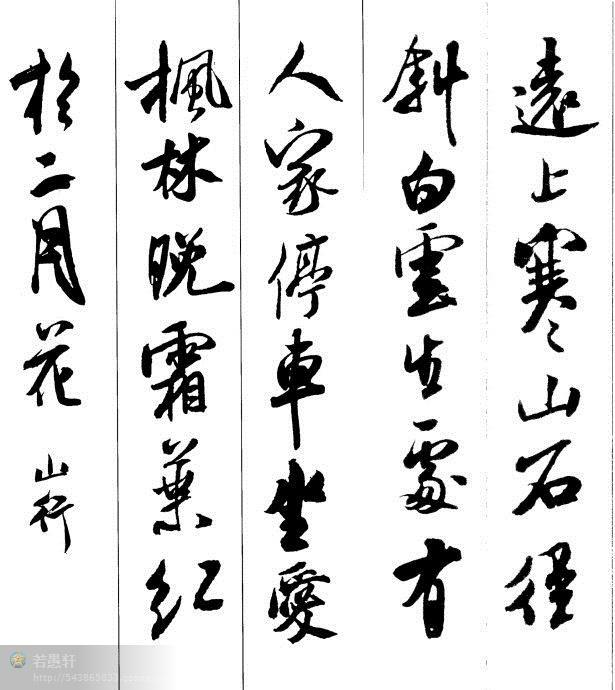 遠上寒山石徑
斜白雲生處有
人家停車坐愛
楓林晚霜葉紅
於二月花
山行
若愚轩